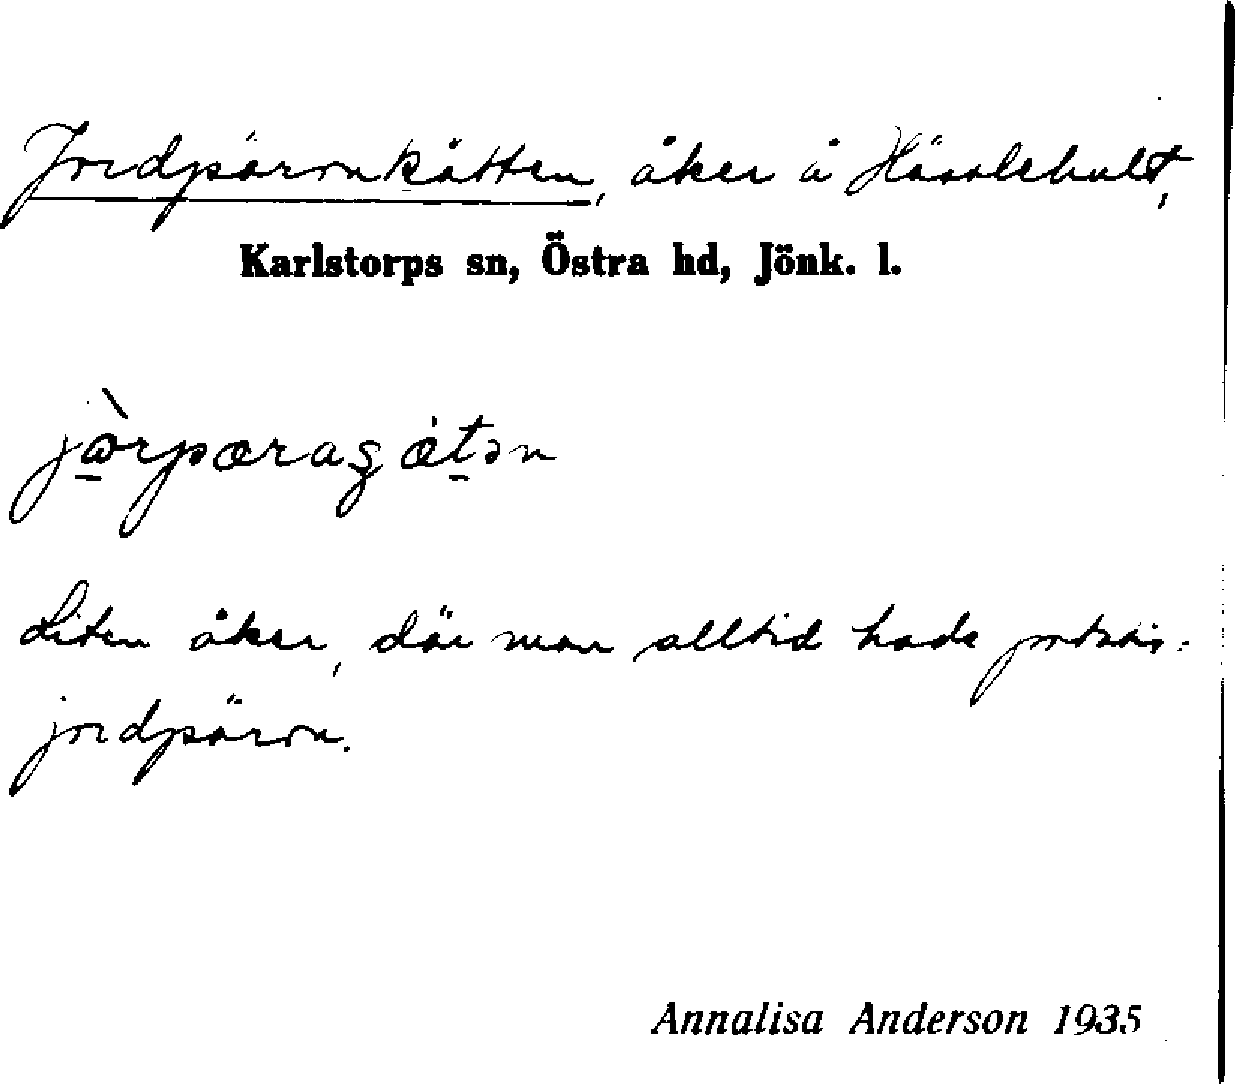 Jordpäronkätten, åker å Hässlehult,
Karlstorps sn, Östra hd, Jönk. l.
Liten åker, där man alltid hade potatis-
jordpäron.
Annalisa Anderson 1935